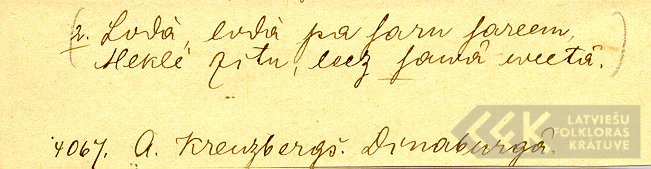 (2. Lodà, lodà pa saru sareem,
Meklè zitu, leez sawâ weetâ.)
4067. A. Kreuzbergs. Dinaburgâ.
LATVIEŠU
FOLKLORAS
KRĀTUVE